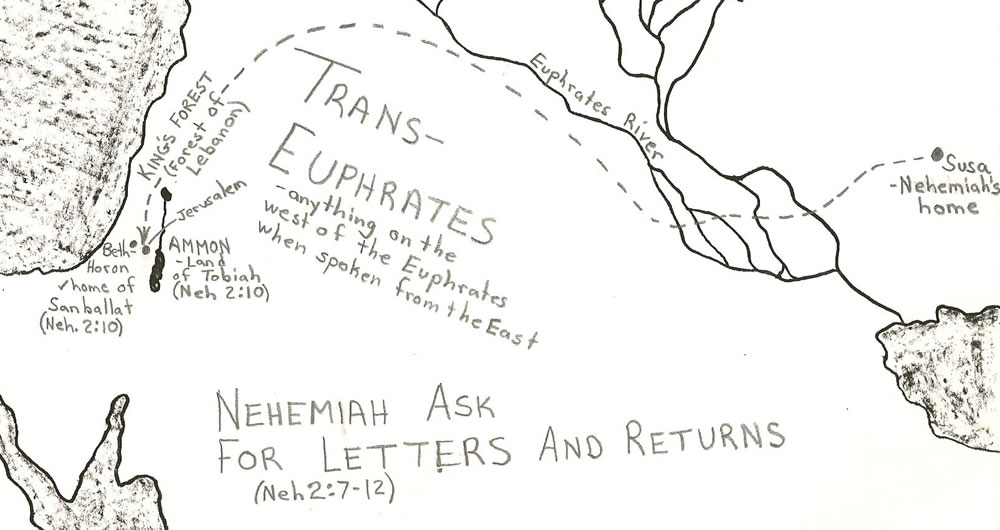 KING'S FOREST
(Forest of
Lebanon)
Jerusalem
Beth-
Horon
✓home of
Sanballat
(Neh. 2:10)
AMMON
-Land
of Tobiah
(Neh 2:10)
TRANS-
EUPHRATES
-anything on the
west of the Euphrates
when spoken from the East
Euphrates River
Susa
-Nehemiah's
home
NEHEMIAH ASK
FOR LETTERS AND RETURNS
(Neh 2:7-12)